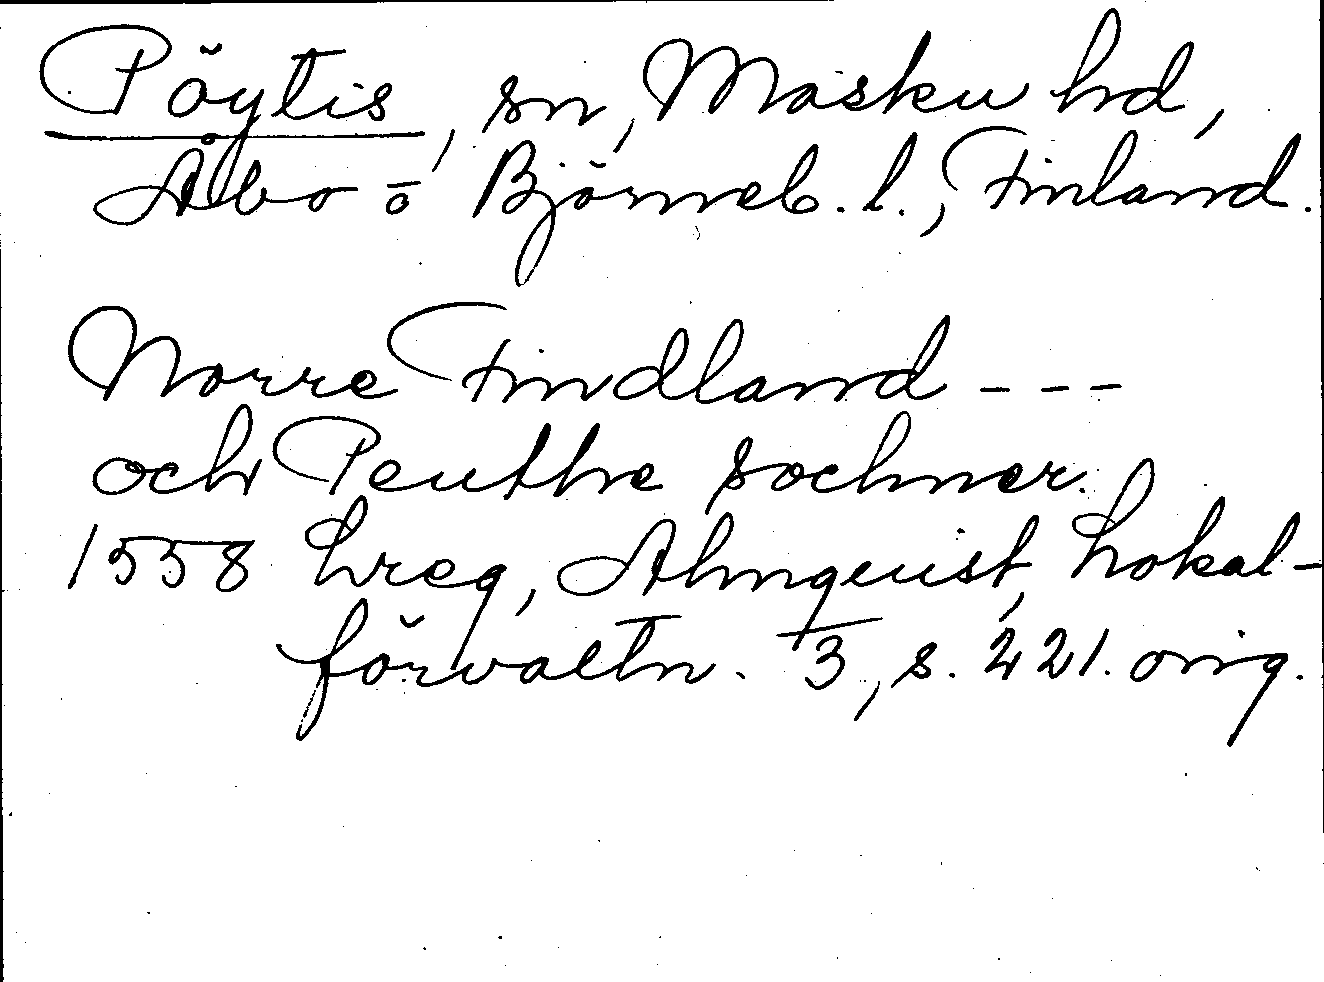 Pöytis, sn, Masku hd,
Åbo o Björneb. l., Finland.
Norre Findland - - -
och Peuthe sochner.
1558 Lreg, Almqvist, Lokal-
förvaltn. 3, s. 221. orig.